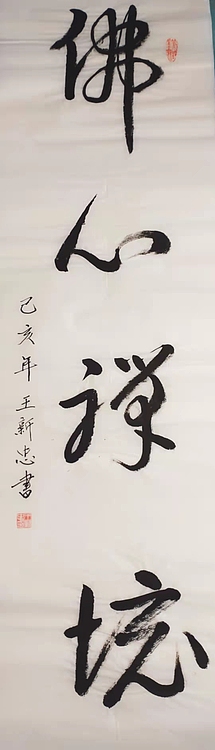 佛心禅境
己亥年王新忠書